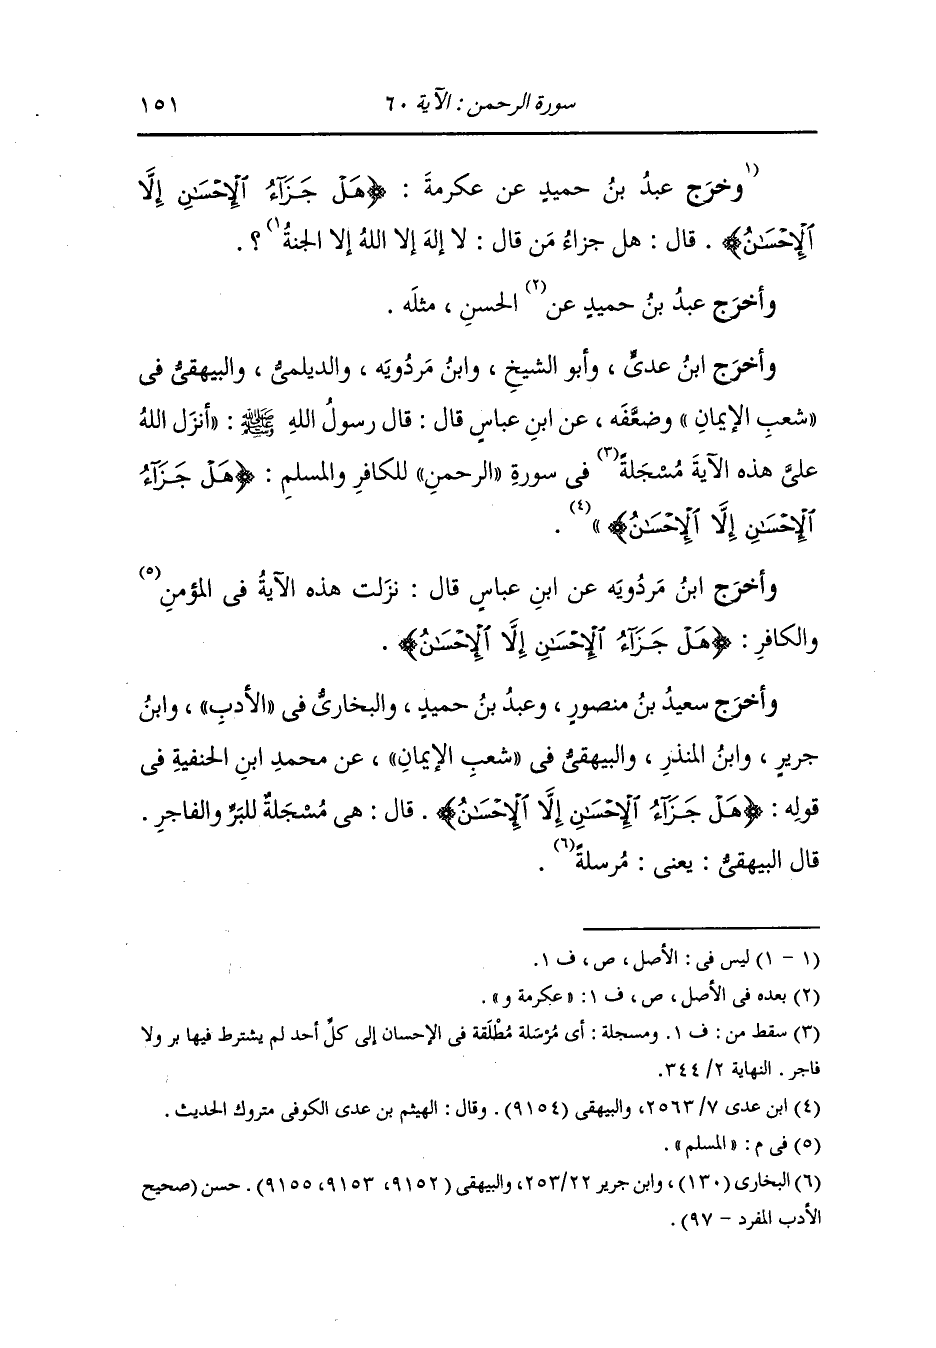 سورة الرحمن : الآية ٦٠ ١٥١
(١وخرَج عبدُ بنُ حميدٍ عن عكرمةَ : ﴿هَلْ جَزَآءُ ٱلْإِحْسَٰنِ إِلَّا
ٱلْإِحْسَٰنُ﴾ . قال : هل جزاءُ مَن قال : لا إلهَ إلا اللهُ إلا الجنةُ١) ؟ .
وأخرَج عبدُ بنُ حميدٍ عن(٢) الحسنِ ، مثلَه .
وأخرَج ابنُ عدىٍّ ، وأبو الشيخِ ، وابنُ مَردُويَه ، والديلمىُّ ، والبيهقىُّ فى
«شعبِ الإيمانِ» وضعَّفَه ، عن ابنِ عباسٍ قال : قال رسولُ اللهِ ﷺ : «أنزَل اللهُ
علىَّ هذه الآيةَ مُسْجَلةً(٣) فى سورةِ «الرحمنِ» للكافرِ والمسلمِ : ﴿هَلْ جَزَآءُ
ٱلْإِحْسَٰنِ إِلَّا ٱلْإِحْسَٰنُ﴾ »(٤) .
وأخرَج ابنُ مَردُويَه عن ابنِ عباسٍ قال : نزَلت هذه الآيةُ فى المؤمنِ(٥)
والكافرِ : ﴿هَلْ جَزَآءُ ٱلْإِحْسَٰنِ إِلَّا ٱلْإِحْسَٰنُ﴾ .
وأخرَج سعيدُ بنُ منصورٍ ، وعبدُ بنُ حميدٍ ، والبخارىُّ فى «الأدبِ» ، وابنُ
جريرٍ ، وابنُ المنذرِ ، والبيهقىُّ فى «شعبِ الإيمانِ» ، عن محمدِ ابنِ الحنفيةِ فى
قولِه : ﴿هَلْ جَزَآءُ ٱلْإِحْسَٰنِ إِلَّا ٱلْإِحْسَٰنُ﴾ . قال : هى مُسْجَلةٌ للبَرِّ والفاجرِ .
قال البيهقىُّ : يعنى : مُرسلةً(٦) .
(١ - ١) ليس فى : الأصل ، ص ، ف ١.
(٢) بعده فى الأصل ، ص ، ف ١: «عكرمة و» .
(٣) سقط من : ف ١. ومسجلة : أى مُرْسَلة مُطْلَقة فى الإحسان إلى كلِّ أحد لم يشترط فيها بر ولا
فاجر . النهاية ٢/ ٣٤٤.
(٤) ابن عدى ٧/ ٢٥٦٣، والبيهقى (٩١٥٤) . وقال : الهيثم بن عدى الكوفى متروك الحديث .
(٥) فى م : «المسلم» .
(٦) البخارى (١٣٠) ، وابن جرير ٢٢/ ٢٥٣، والبيهقى (٩١٥٢، ٩١٥٣، ٩١٥٥) . حسن (صحيح
الأدب المفرد - ٩٧) .